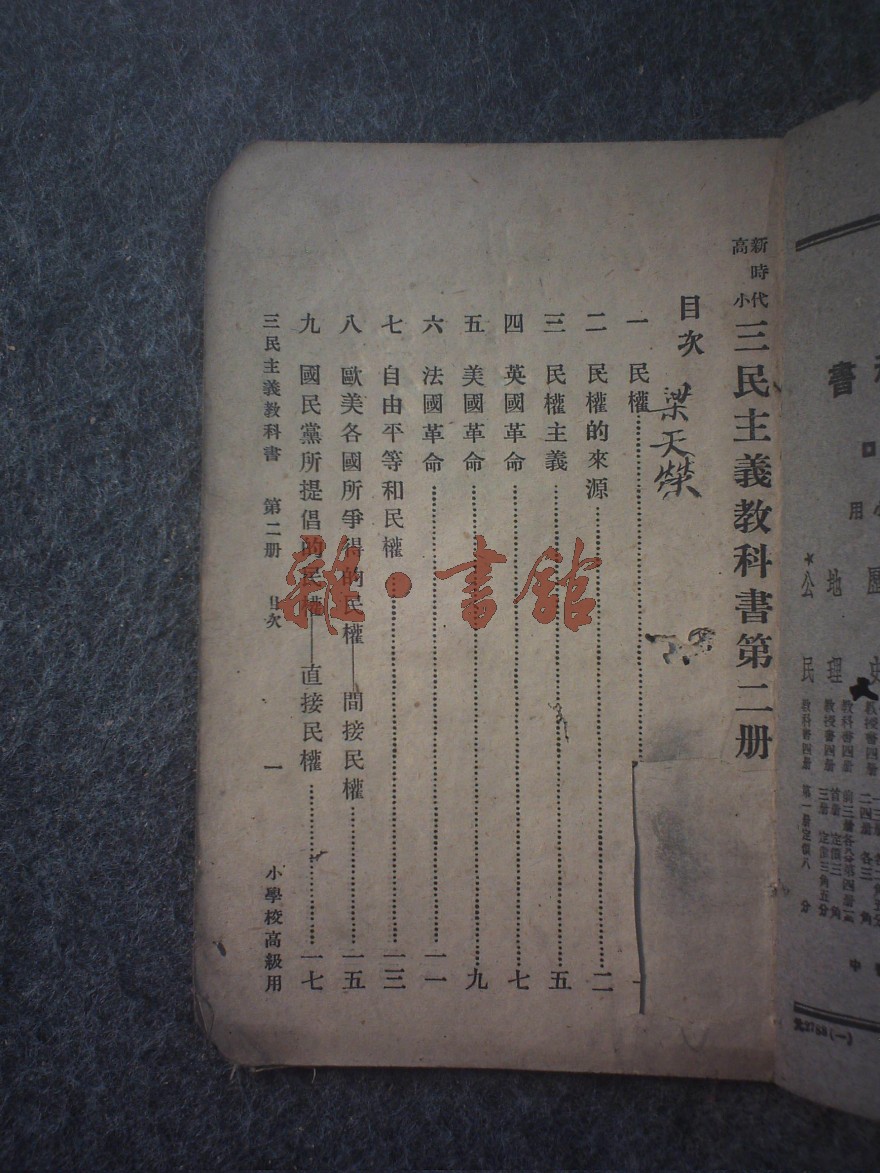 新時代
高小
三民主義教科書第二册
目次
梁天榮
一 民權
二 民權的來源 二
三 民權主義 五
四 英國革命 七
五 美國革命 九
六 法國革命 一一
七 自由平等和民權 一三
八 歐美各國所爭得的民權——間接民權 一五
九 國民黨所提倡的民權——直接民權 一七
三民主義教科書 第二册 目次 一 小學校高級用
雜·書館
書
用
歷史
地理
公民
教科書四册 第一册定價八分
中